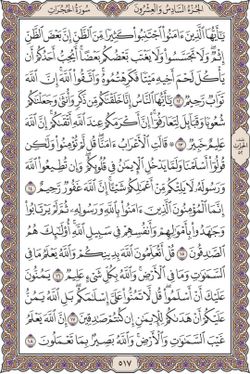 الجزء السادس والعشرون سورة الحجرات
يَٰٓأَيُّهَا ٱلَّذِينَ ءَامَنُوا۟ ٱجْتَنِبُوا۟ كَثِيرًا مِّنَ ٱلظَّنِّ إِنَّ بَعْضَ ٱلظَّنِّ
إِثْمٌ وَلَا تَجَسَّسُوا۟ وَلَا يَغْتَب بَّعْضُكُم بَعْضًا أَيُحِبُّ أَحَدُكُمْ أَن
يَأْكُلَ لَحْمَ أَخِيهِ مَيْتًا فَكَرِهْتُمُوهُ وَٱتَّقُوا۟ ٱللَّهَ إِنَّ ٱللَّهَ
تَوَّابٌ رَّحِيمٌ ١٢ يَٰٓأَيُّهَا ٱلنَّاسُ إِنَّا خَلَقْنَٰكُم مِّن ذَكَرٍ وَأُنثَىٰ وَجَعَلْنَٰكُمْ
شُعُوبًا وَقَبَآئِلَ لِتَعَارَفُوٓا۟ إِنَّ أَكْرَمَكُمْ عِندَ ٱللَّهِ أَتْقَىٰكُمْ إِنَّ ٱللَّهَ
عَلِيمٌ خَبِيرٌ ١٣ قَالَتِ ٱلْأَعْرَابُ ءَامَنَّا قُل لَّمْ تُؤْمِنُوا۟ وَلَٰكِن
قُولُوٓا۟ أَسْلَمْنَا وَلَمَّا يَدْخُلِ ٱلْإِيمَٰنُ فِى قُلُوبِكُمْ وَإِن تُطِيعُوا۟ ٱللَّهَ
وَرَسُولَهُۥ لَا يَلِتْكُم مِّنْ أَعْمَٰلِكُمْ شَيْـًٔا إِنَّ ٱللَّهَ غَفُورٌ رَّحِيمٌ ١٤
إِنَّمَا ٱلْمُؤْمِنُونَ ٱلَّذِينَ ءَامَنُوا۟ بِٱللَّهِ وَرَسُولِهِۦ ثُمَّ لَمْ يَرْتَابُوا۟
وَجَٰهَدُوا۟ بِأَمْوَٰلِهِمْ وَأَنفُسِهِمْ فِى سَبِيلِ ٱللَّهِ أُو۟لَٰٓئِكَ هُمُ
ٱلصَّٰدِقُونَ ١٥ قُلْ أَتُعَلِّمُونَ ٱللَّهَ بِدِينِكُمْ وَٱللَّهُ يَعْلَمُ مَا فِى
ٱلسَّمَٰوَٰتِ وَمَا فِى ٱلْأَرْضِ وَٱللَّهُ بِكُلِّ شَىْءٍ عَلِيمٌ ١٦ يَمُنُّونَ
عَلَيْكَ أَنْ أَسْلَمُوا۟ قُل لَّا تَمُنُّوا۟ عَلَىَّ إِسْلَٰمَكُم بَلِ ٱللَّهُ يَمُنُّ
عَلَيْكُمْ أَنْ هَدَىٰكُمْ لِلْإِيمَٰنِ إِن كُنتُمْ صَٰدِقِينَ ١٧ إِنَّ ٱللَّهَ يَعْلَمُ
غَيْبَ ٱلسَّمَٰوَٰتِ وَٱلْأَرْضِ وَٱللَّهُ بَصِيرٌۢ بِمَا تَعْمَلُونَ ١٨
٥١٧